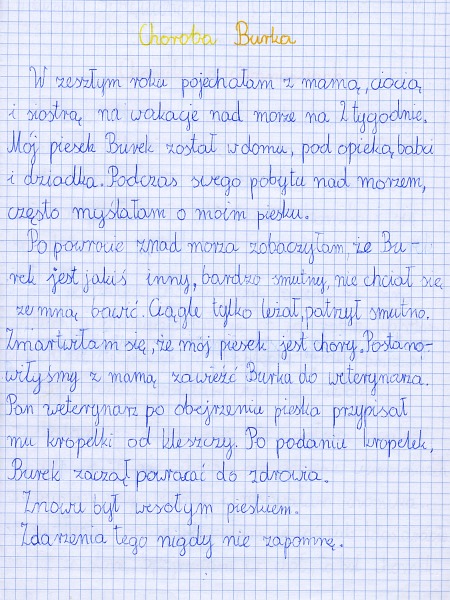 Choroba Burka
W zeszłym roku pojechałam z mamą, ciocią
i siostrą na wakacje nad morze na 2 tygodnie.
Mój piesek Burek został w domu, pod opieką babci
i dziadka. Podczas swego pobytu nad morzem,
często myślałam o moim piesku.
Po powrocie znad morza zobaczyłam, że Bu-
rek jest jakiś inny, bardzo smutny, nie chciał się
ze mną bawić. Ciągle tylko leżał, patrzył smutno.
Zmartwiłam się, że mój piesek jest chory. Postano-
wiłyśmy z mamą zawieźć Burka do weterynarza.
Pan weterynarz po obejrzeniu pieska przypisał
mu kropelki od kleszczy. Po podaniu kropelek,
Burek zaczął powracać do zdrowia.
Znowu był wesołym pieskiem.
Zdarzenia tego nigdy nie zapomnę.